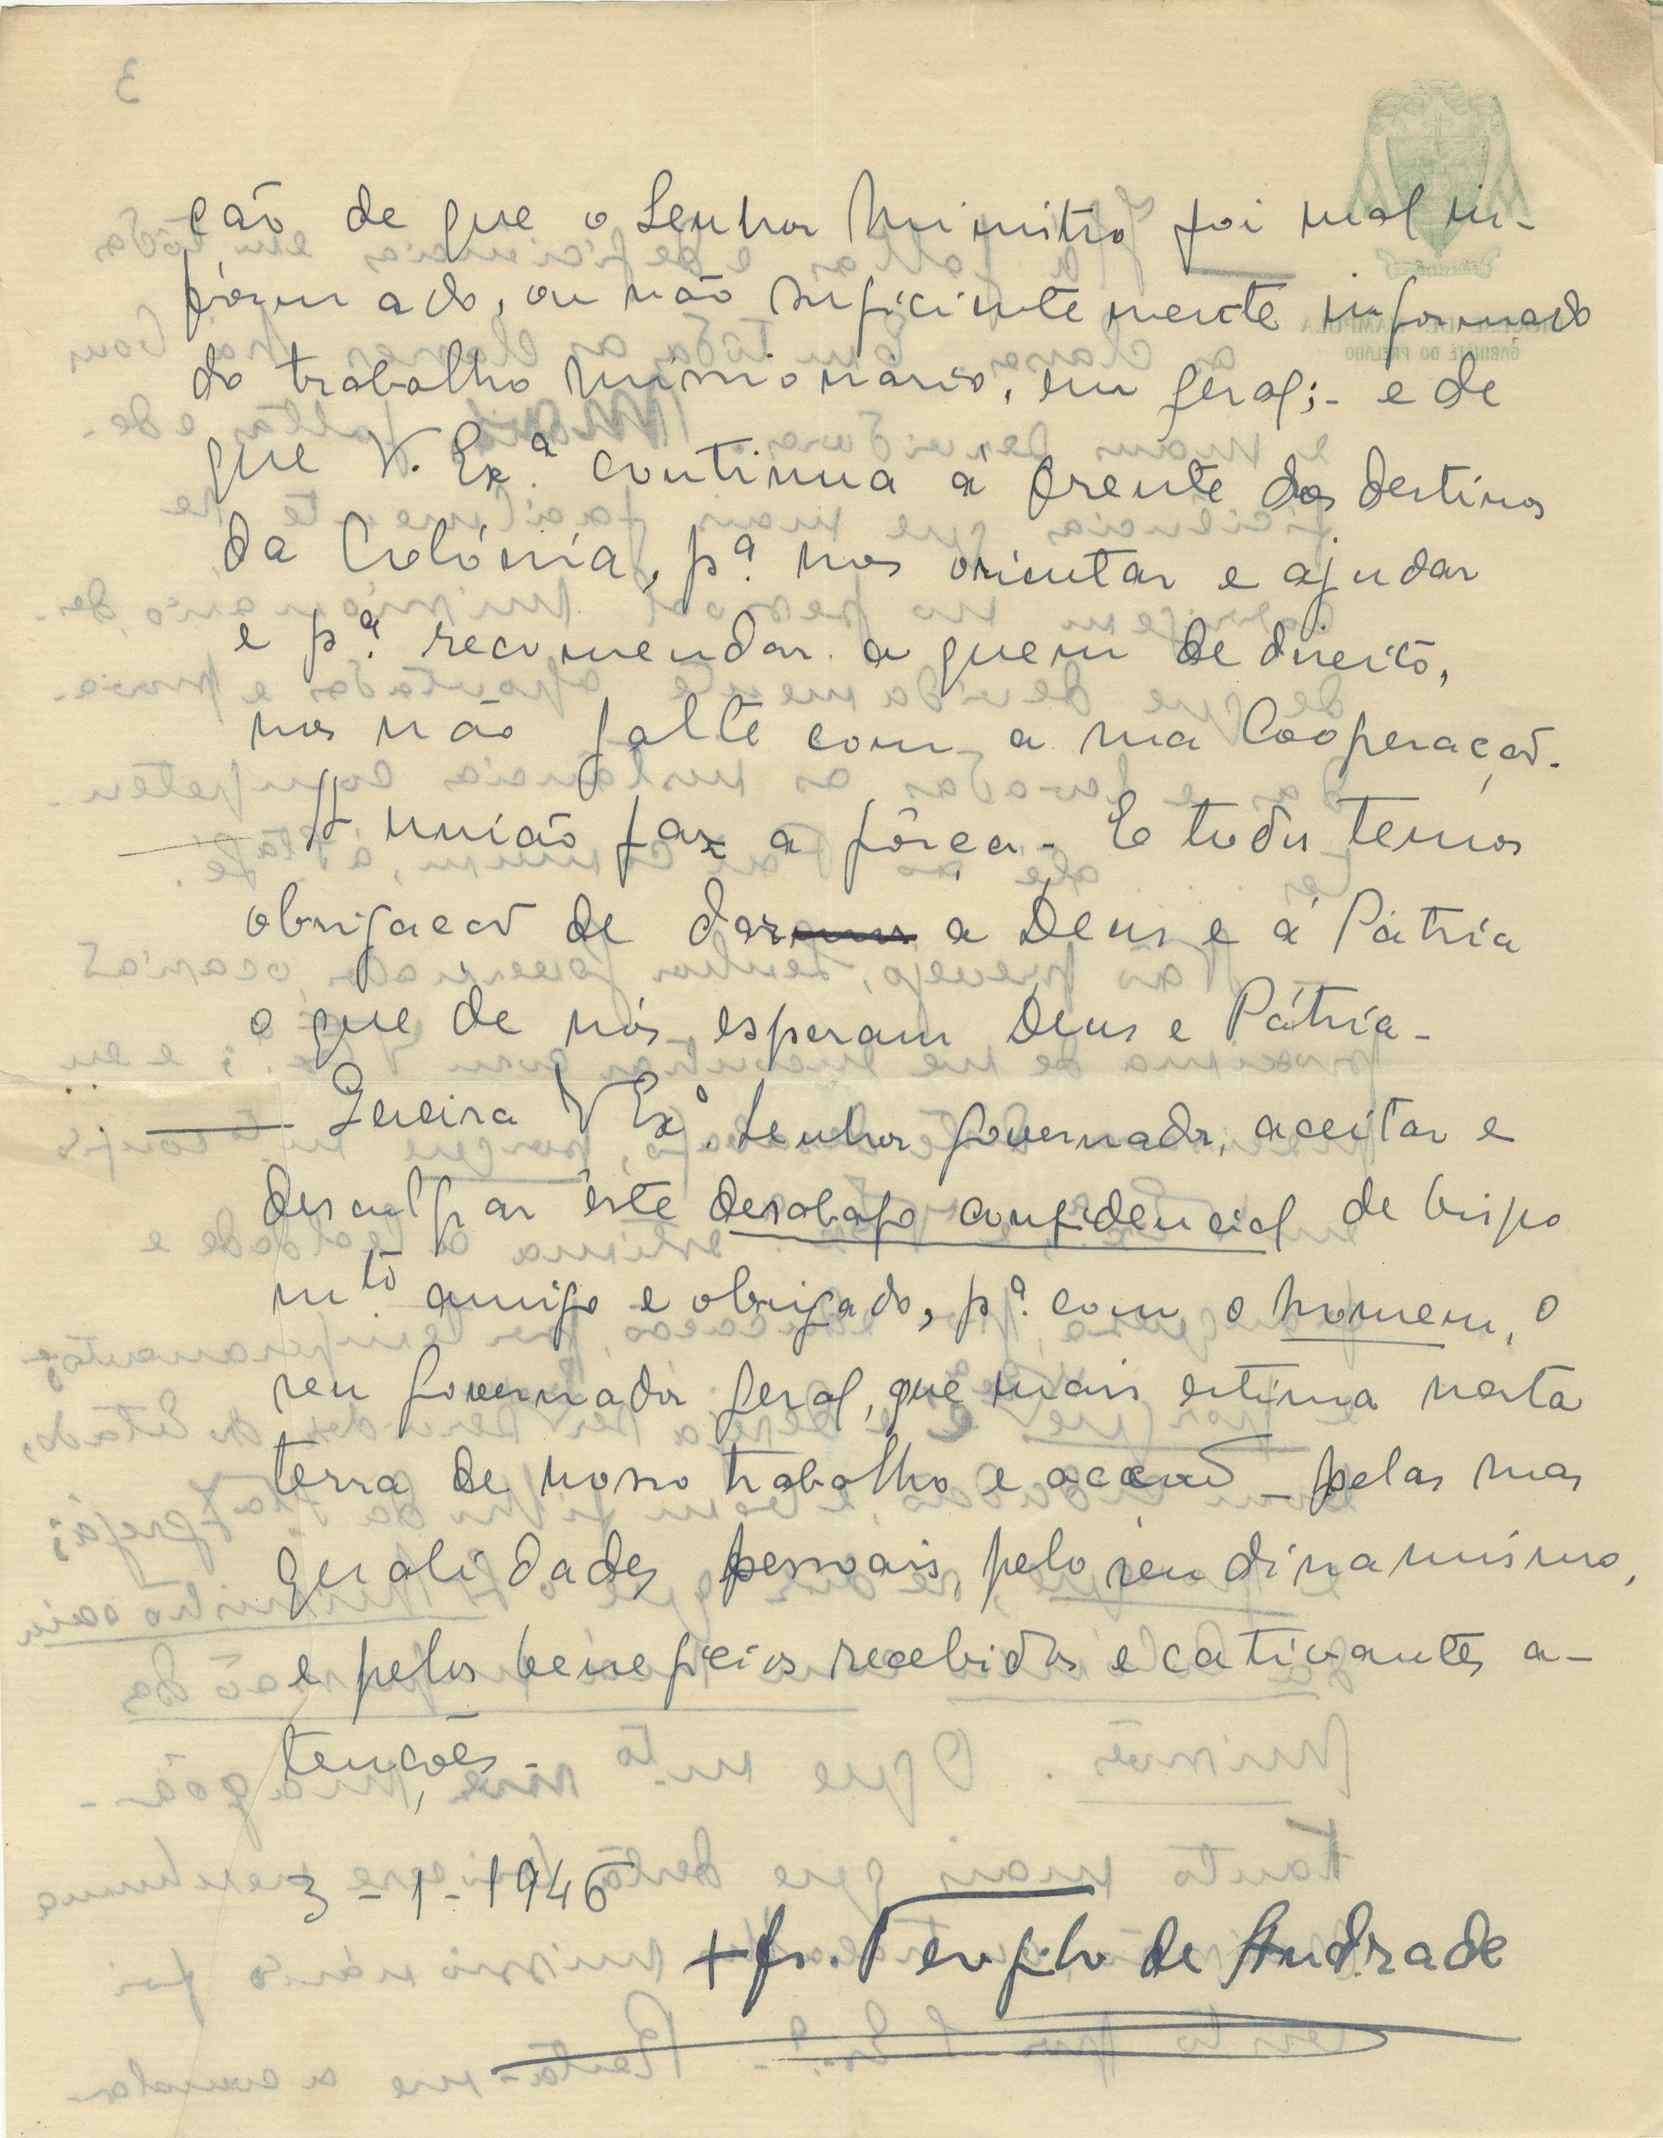 ção de que o Senhor Ministro foi mal in-
formado, ou não suficientemente informado
do trabalho missionário, em geral; - e de
que V. Exª. continua à frente dos destinos
da Colónia, pª. nos orientar e ajudar
e pª. recomendar a quem de direito,
nos não falte com a sua Cooperação.
— A união faz a fôrça - E todos temos
obrigação de dar a Deus e à Pátria
o que de nós esperam Deus e Pátria -
— Queira V Exª. Senhor Governador, aceitar e
desculpar êste desabafo confidencial de bispo
mtº. amigo e obrigado, pª. com o homem, o
seu Governador Geral, que mais estima nesta
terra de nosso trabalho e acção - pelas suas
qualidades pessoais, pelo seu dinamismo,
e pelos beneficios recebidos e cativantes a-
tenções -
3 - 1 - 1946
+ fr. Teofilo de Andrade